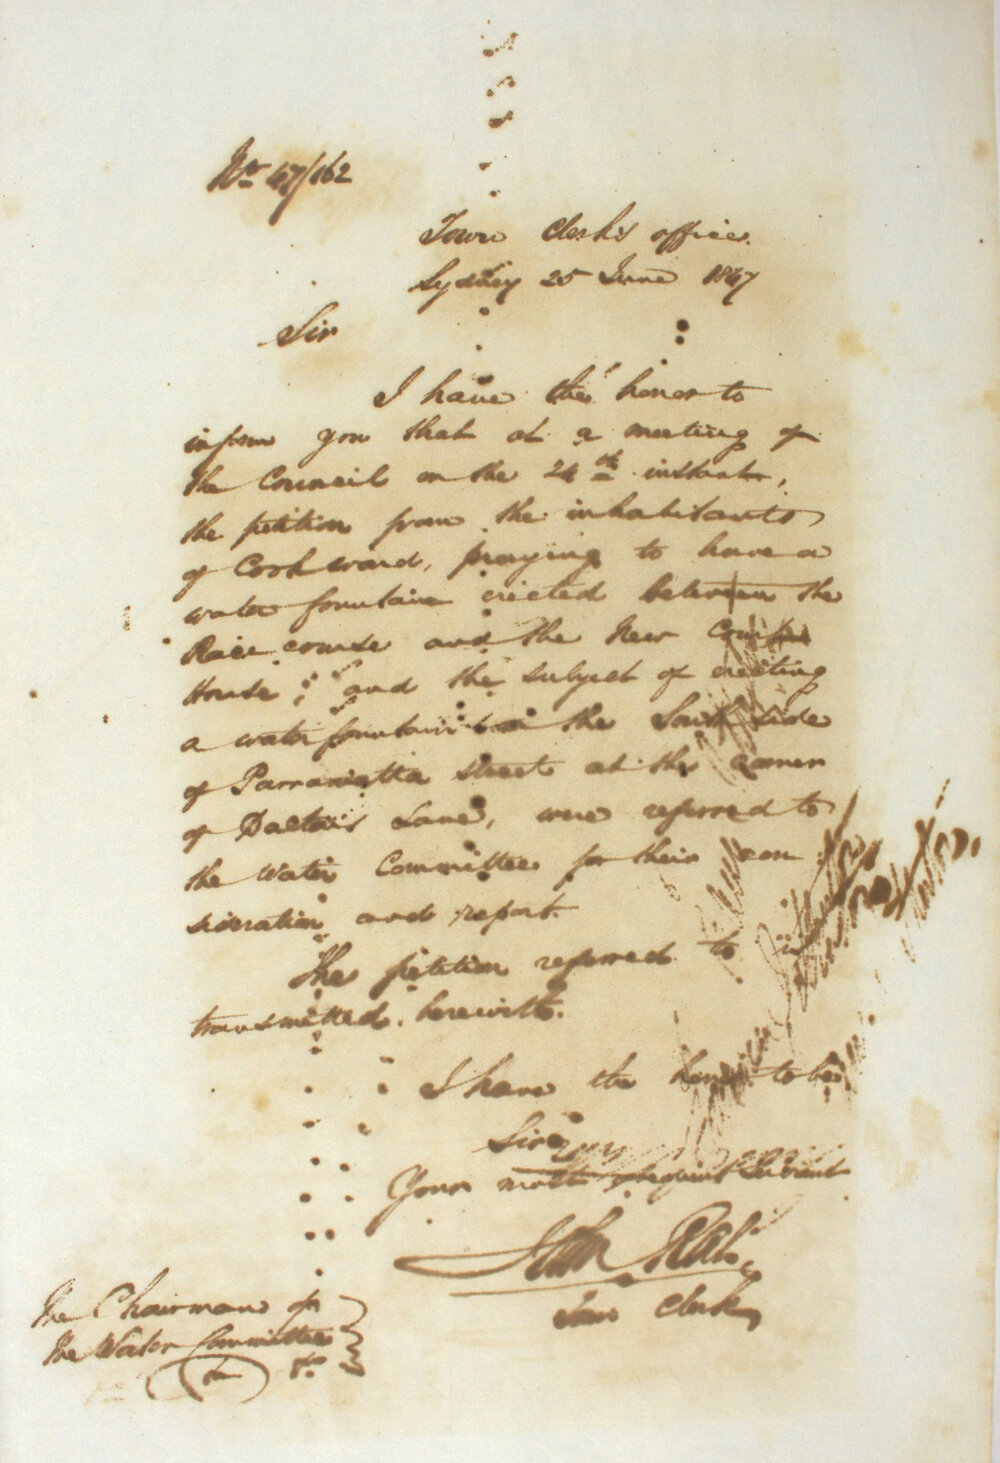 No 47/162
Town Clerk's office.
Sydney 25 June 1847
Sir
I have the honor to
inform you that at a meeting of
the Council on the 24th instant,
the petition from the inhabitants
of Cook ward, praying to have a
water fountain erected between the
Race course and the New Court
House; and the subject of erecting
a water fountain on the South side
of Parramatta Street at the corner
of Lane, were referred to
the Water Committee for their con
sideration and report.
The petition referred to is
transmitted herewith.
I have the honor to be
Sir
Your most obedient Servant
John Rae
Town Clerk
The Chairman of
the Water Committee
&c